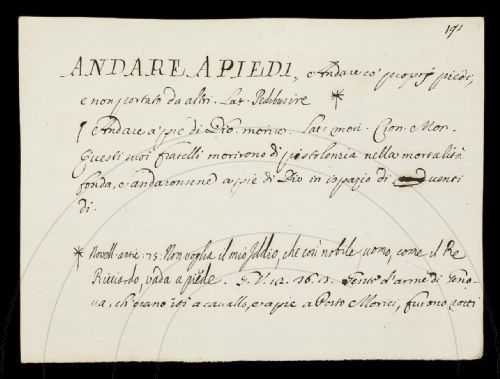 191
ANDARE A PIEDI, Andare co' proprj piedi,
e non portato da altri. Lat. Pedibus ire *
¶ Andare a piè di Dio morire. Lat. mori. Cron. Mor.
Questi tuoi fratelli morirono di pistolenzia nella mortalità
fonda, e andaronsene appiè di Dio in ispazio di venti
dì.
* Novell. antic. 75. Non voglia il mio Iddio, che così nobile uomo, come il Re
Ricciardo, vada a piede. G. V. 12. 26. 3. Gente d'arme di Geno-
va, ch'erano iti a cavallo, e appiè a Porto Morici, furono rotti